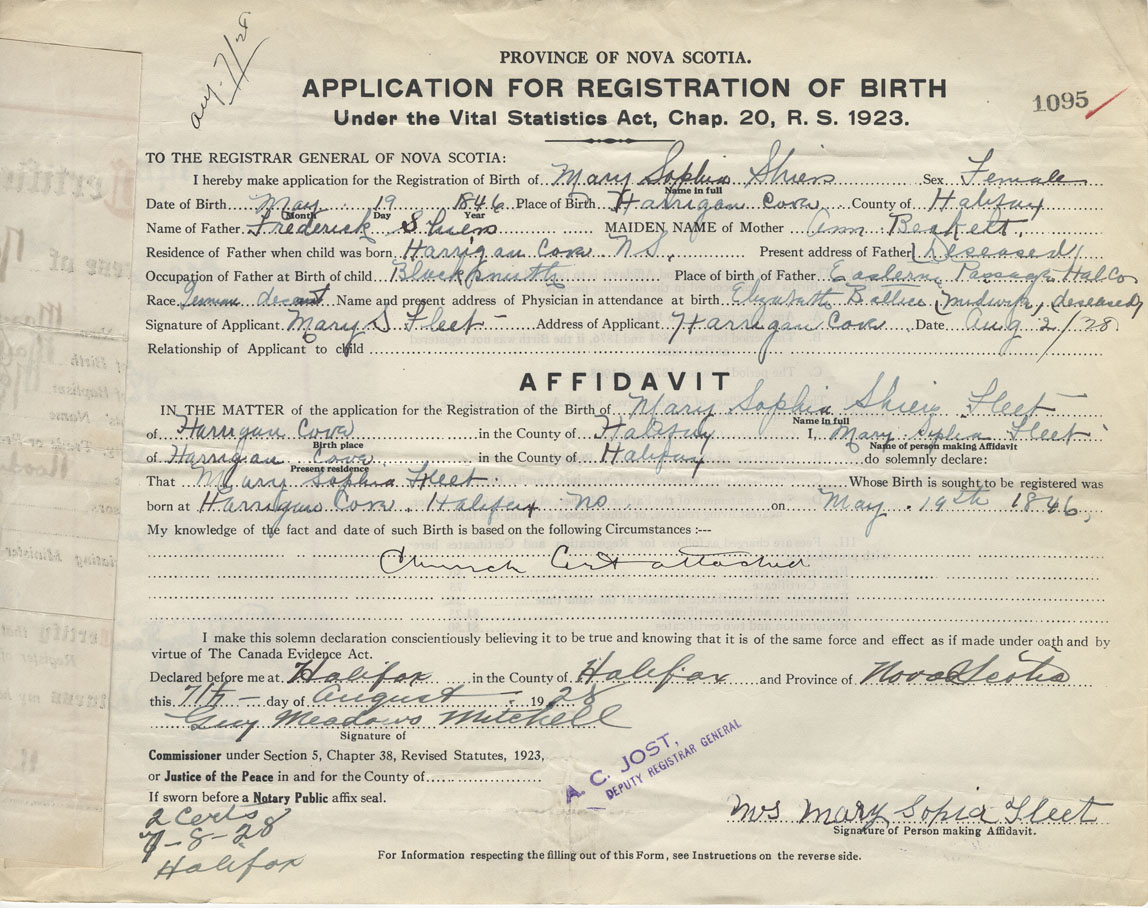 Aug. 7/28
PROVINCE OF NOVA SCOTIA.
APPLICATION FOR REGISTRATION OF BIRTH
1095
Under the Vital Statistics Act, Chap. 20, R. S. 1923.
TO THE REGISTRAR GENERAL OF NOVA SCOTIA:
I hereby make application for the Registration of Birth of Mary Sophia Shiers Sex Female
Name in full
Date of Birth May 19 1846 Place of Birth Harrigan Cove County of Halifax
Month Day Year
Name of Father Frederick Shiers MAIDEN NAME of Mother Ann Beckett
Residence of Father when child was born Harrigan Cove N.S. Present address of Father (Deseased)
Occupation of Father at Birth of child Blacksmith Place of birth of Father Eastern Passage Hal Co
Race German decent Name and present address of Physician in attendance at birth Elizabeth (Midwife, deseased)
Signature of Applicant Mary S Fleet Address of Applicant Harrigan Cove Date Aug 2/28
Relationship of Applicant to child
AFFIDAVIT
IN THE MATTER of the application for the Registration of the Birth of Mary Sophia Fleet
Name in full
of Harrigan Cove in the County of Halifax I, Mary Sophia Fleet
Birth place Name of person making Affidavit
of Harrigan Cove in the County of Halifax do solemnly declare:
Present residence
That Mary Sophia Fleet Whose Birth is sought to be registered was
born at Harrigan Cove Halifax NS on May 19th 1846,
My knowledge of the fact and date of such Birth is based on the following Circumstances :---
Church Cert attached
I make this solemn declaration conscientiously believing it to be true and knowing that it is of the same force and effect as if made under oath and by
virtue of The Canada Evidence Act.
Declared before me at Halifax in the County of Halifax and Province of Nova Scotia
this 7th day of August 1928
Guy Meadows Mitchell
Signature of
Commissioner under Section 5, Chapter 38, Revised Statutes, 1923,
or Justice of the Peace in and for the County of
A. C. JOST,
DEPUTY REGISTRAR GENERAL
If sworn before a Notary Public affix seal.
2 Certs
7-8-28
Halifax
Mrs Mary Sopia Fleet
Signature of Person making Affidavit.
For Information respecting the filling out of this Form, see Instructions on the reverse side.